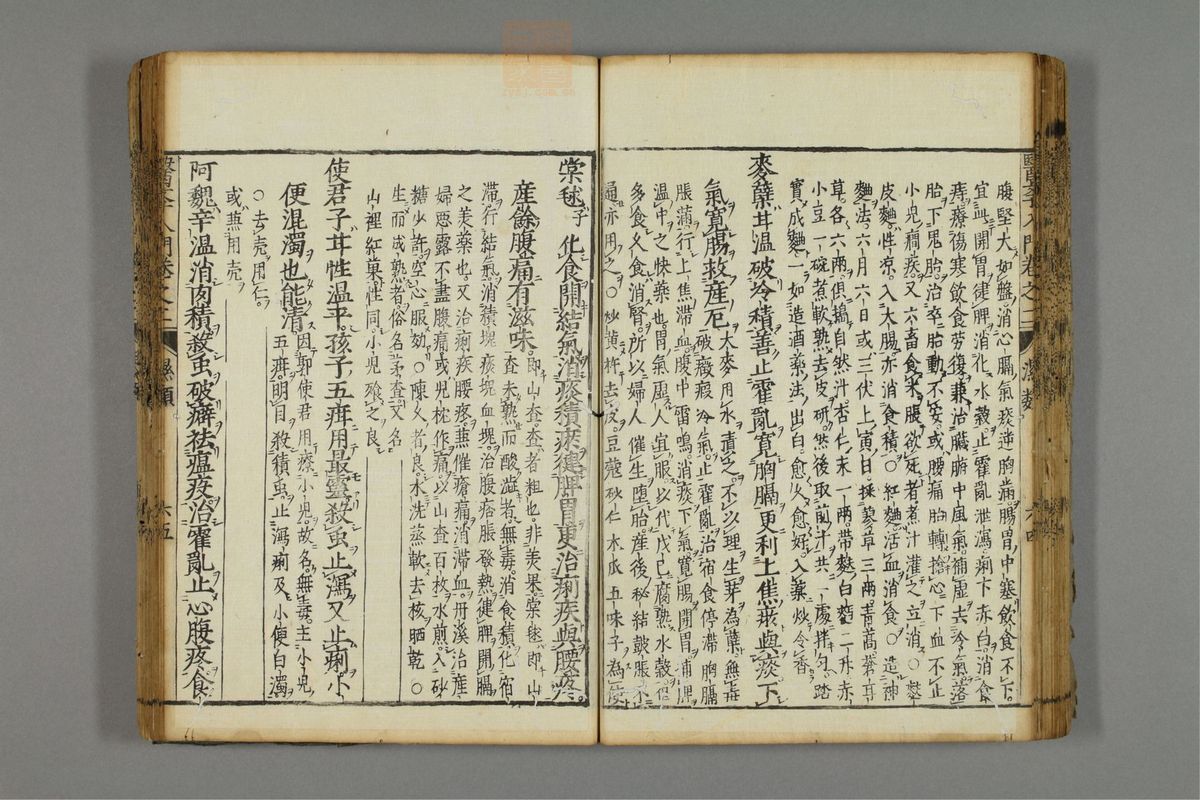 腹堅大如盤消心膈氣痰逆胸滿腸胃中塞飲食不下
宜𧖴開胃健脾消化水穀止霍亂泄瀉痢下赤白消食
痔療傷寒飲食勞復兼治臟腑中風氣補虛去冷氣落
胎下鬼胎治卒胎動不安或腰痛胎轉搶心下血不止
小兒癇疾又六畜食米脹欲死者煮汁灌之立消○麩
皮麵性涼入大腸亦消食積○紅麵活血消食○造神
麵法六月六日或三伏上寅日採蓼草三兩青蒿蒼耳
草各六兩俱搗自然汁杏仁末一兩帶麩白麵二升赤
小豆一碗煮軟熟去皮研然後取前汁共一處拌勻踏
實成麵一如造酒藥法出白愈久愈好入藥炒令香
麥蘗甘溫破冷積善止霍亂寬胸膈更利上焦痰與淡下
氣寬腸救産厄
大麥用水漬之不以理生芽為蘗無毒
破癥瘕冷氣止霍亂治宿食停滯胸膈
脹滿行上焦滯血腹中雷鳴消痰下氣寬腸開胃補脾
溫中之快藥也胃氣虛人宜服以代戊己腐熟水穀但
多食久食消腎所以婦人催生墮胎産後秘結鼓脹不
通亦用之○炒黃杵去皮豆蔻砂仁木瓜五味子為使
醫學入門卷之二 濕類 六四
棠毬子 化食開結氣消痰積瘀健脾胃更治痢疾與腰疼
産餘腹痛有滋味
即山查查者粗也非美果棠毬即山
查未熟而酸澁者無毒消食積化宿
滯行結氣消積塊痰塊血塊治腹痞脹發熱健脾開膈
之美藥也又治痢疾腰疼兼催瘡痛消滯血丹溪治産
婦惡露不盡腹痛或兒枕作痛以山查百枚水煎入砂
糖少許空心服効○陳久者良水洗蒸軟去核晒乾○
生而成熟者俗名茅查又名
山裡紅菓性同小兒飱之良
使君子甘性溫平孩子五疳用最靈殺虫止瀉又止痢小
便混濁也能清
因郭使君用療小兒故名無毒主小兒
五疳明目殺積虫止瀉痢及小便白濁
○去壳用仁
或兼用壳
阿魏辛溫消肉積殺虫破癖祛瘟疫治霍亂止心腹疼食
醫學入門卷之二 濕類 六五